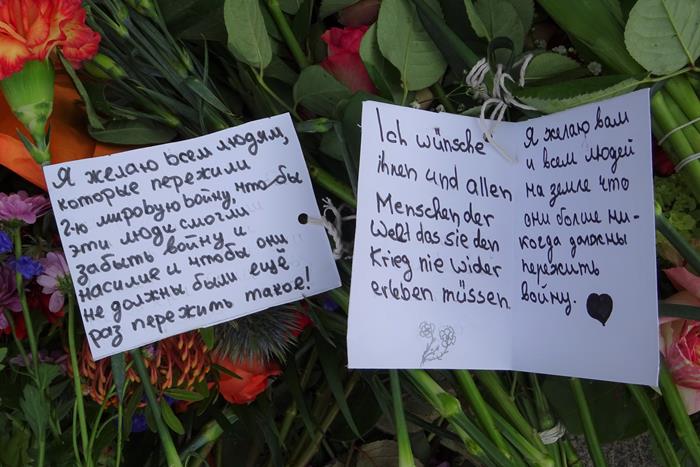 Я желаю всем людям,
которые пережили
2-ю мировую войну, что бы
эти люди смогли
забыть войну и
насилие и чтобы они
не должны были ещё
раз пережить такое!
Ich wünsche
ihnen und allen
Menschen der
Welt das sie den
Krieg nie wider
erleben müssen.
Я желаю вам
и всем людей
на земле что
они болше ни-
когда должны
пережить
войну.